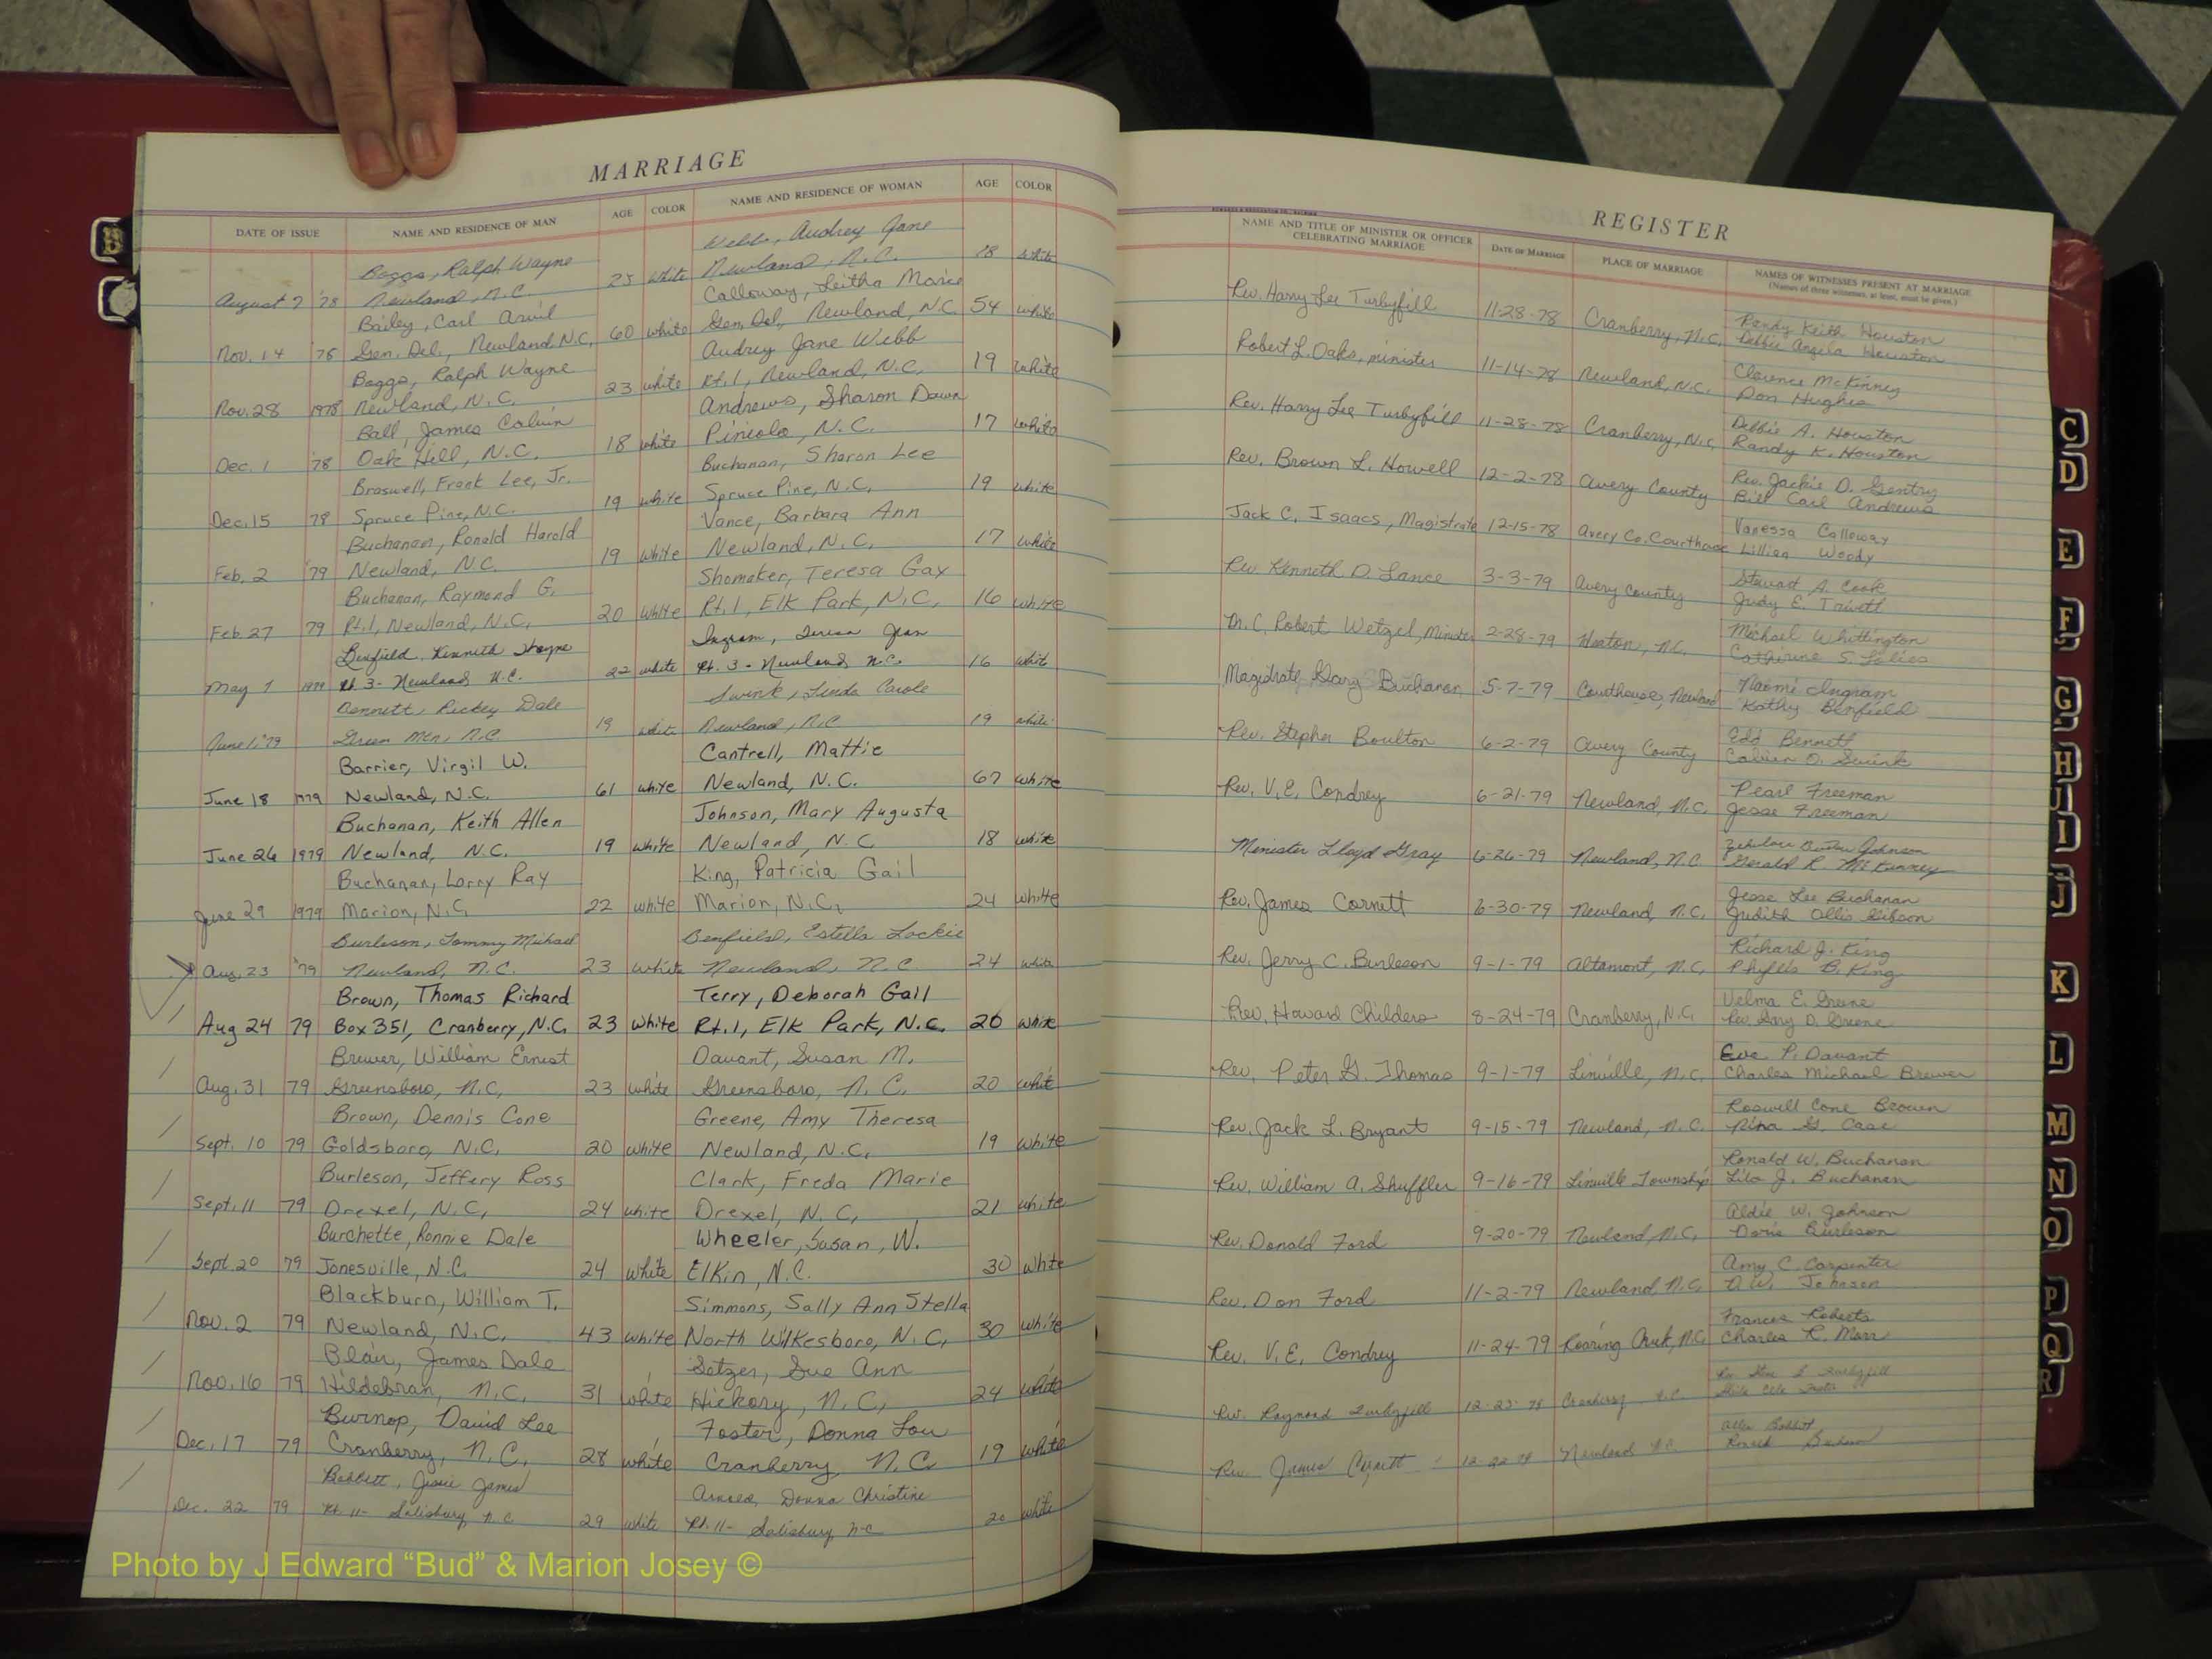 MARRIAGE
DATE OF ISSUE NAME AND RESIDENCE OF MAN AGE COLOR NAME AND RESIDENCE OF WOMAN AGE COLOR
Boggs, Ralph Wayne Webb, Audrey Jane
August 7 '78 Newland, N.C. 23 white Newland, N.C. 18 white
Bailey, Carl Arvil Calloway, Leitha Marie
Nov. 14 '78 Gen. Del., Newland N.C. 60 white Gen. Del., Newland, N.C. 54 white
Boggs, Ralph Wayne Audrey Jane Webb
Nov. 28 1978 Newland, N.C. 23 white Rt. 1, Newland, N.C. 19 white
Ball, James Calvin Andrews, Sharon Dawn
Dec. 1 '78 Oak Hill, N.C. 18 white Pineola, N.C. 17 white
Braswell, Frank Lee, Jr. Buchanan, Sharon Lee
Dec. 15 78 Spruce Pine, N.C. 19 white Spruce Pine, N.C. 19 white
Buchanan, Ronald Harold Vance, Barbara Ann
Feb. 2 '79 Newland, N.C. 19 white Newland, N.C. 17 white
Buchanan, Raymond G. Shomaker, Teresa Gay
Feb. 27 79 Rt. 1, Newland, N.C. 20 white Rt. 1, Elk Park, N.C. 16 white
Benfield, Kenneth Wayne Ingram, Teresa Jean
May 7 1979 Rt 3- Newland N.C. 22 white Rt. 3- Newland N.C. 16 whit
Bennett, Rickey Dale Swink, Linda Carole
June 1, '79 Green Mtn, N.C. 19 white Newland, N.C. 19 white
Barrier, Virgil W. Cantrell, Mattie
June 18 1979 Newland, N.C. 61 white Newland, N.C. 67 white
Buchanan, Keith Allen Johnson, Mary Augusta
June 26 1979 Newland, N.C. 19 white Newland, N.C. 18 white
Buchanan, Larry Ray King, Patricia Gail
June 29 1979 Marion, N.C. 22 white Marion, N.C. 24 white
Burleson, Tommy Michael Benfield, Estella Lockie
Aug. 23 '79 Newland, N.C. 23 white Newland, N.C. 24 white
Brown, Thomas Richard Terry, Deborah Gail
Aug 24 79 Box 351, Cranberry, N.C. 23 white Rt. 1, Elk Park, N.C. 20 white
Brewer, William Ernest Davant, Susan M.
Aug. 31 79 Greensboro, N.C. 23 white Greensboro, N.C. 20 white
Brown, Dennis Cone Greene, Amy Theresa
Sept. 10 79 Goldsboro, N.C. 20 white Newland, N.C. 19 white
Burleson, Jeffery Ross Clark, Freda Marie
Sept. 11 79 Drexel, N.C. 24 white Drexel, N.C. 21 white
Burchette, Ronnie Dale Wheeler, Susan, W.
Sept. 20 79 Jonesville, N.C. 24 white Elkin, N.C. 30 white
Blackburn, William T. Simmons, Sally Ann Stella
Nov. 2 79 Newland, N.C. 43 white North Wilkesboro, N.C. 30 white
Blair, James Dale Setzer, Sue Ann
Nov. 16 79 Hildebran, N.C. 31 white Hickory, N.C. 24 white
Burnop, David Lee Foster, Donna Lou
Dec. 17 79 Cranberry, N.C. 28 white Cranberry, N.C. 19 white
James Donna Christine
Dec. 22 79 Rt. 11- Salisbury, N.C. 29 white Rt. 11- Salisbury N-C 20 white
REGISTER
NAME AND TITLE OF MINISTER OR OFFICER CELEBRATING MARRIAGE DATE OF MARRIAGE PLACE OF MARRIAGE NAMES OF WITNESSES PRESENT AT MARRIAGE
(Names of three witnesses, at least, must be given.)
Rev. Harry Lee Turbyfill 11-28-78 Cranberry, N.C. Randy Keith Houston
Debbie Angela Houston
Robert L. Oaks, minister 11-14-78 Newland, N.C. Clarence McKinney
Don Hughes
Rev. Harry Lee Turbyfill 11-28-78 Cranberry, N.C. Debbie A. Houston
Randy K. Houston
Rev. Brown L. Howell 12-2-78 Avery County Rev. Jackie D. Gentry
Bill Carl Andrews
Jack C. Isaacs, Magistrate 12-15-78 Avery Co. Courthouse Vanessa Calloway
Lillian Woody
Rev. Kenneth D. Lance 3-3-79 Avery County Stewart A. Cook
Judy E. Trivett
M. C. Robert Wetzel, Minister 2-28-79 Heaton, N.C. Michael Whittington
Catherine S.
Magistrate Gary Buchanan 5-7-79 Courthouse, Newland Naomi Ingram
Kathy Benfield
Rev. Stephen Boulton 6-2-79 Avery County Edd Bennett
Calvin O. Swink
Rev. V.E. Condrey 6-21-79 Newland, N.C. Pearl Freeman
Jesse Freeman
Minister Lloyd Gray 6-26-79 Newland, N.C. Johnson
Gerald R. McKinney
Rev. James Cornett 6-30-79 Newland, N.C. Jesse Lee Buchanan
Judith Ollis Gibson
Rev. Jerry C. Burleson 9-1-79 Altamont, N.C. Richard J. King
Phyllis B. King
Rev. Howard Childers 8-24-79 Cranberry, N.C. Velma E. Greene
Rev. Gary D. Greene
Rev. Peter G. Thomas 9-1-79 Linville, N.C. Eve P. Davant
Charles Michael Brewer
Rev. Jack L. Bryant 9-15-79 Newland, N.C. Roswell Cone Brown
Nina G. Case
Rev. William A. Shuffler 9-16-79 Linville Township Ronald W. Buchanan
Lila J. Buchanan
Rev. Donald Ford 9-20-79 Newland, N.C. Aldie W. Johnson
Doris Burleson
Rev. Don Ford 11-2-79 Newland N.C. Amy C. Carpenter
A.W. Johnson
Rev. V.E. Condrey 11-24-79 Roaring Creek, N.C. Frances Roberts
Charles R. Morr
Rev. Raymond Turbyfill 12-23-79 Cranberry N.C.
Rev. James Cornett 12-22-79 Newland N.C.
C
D
E
F
G
H
I
J
K
L
M
N
O
P
Q
R
Photo by J Edward “Bud” & Marion Josey ©